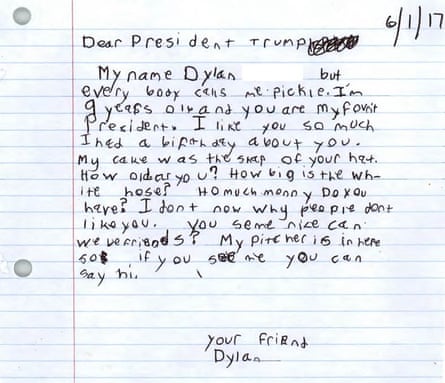 6/1/17
Dear President Trump
My name Dylan but
every body calls me pickle. I'm
9 years old and you are my favorit
President. I like you so much
I had a birthday about you.
My cake was the shap of your hat.
How old ar you? How big is the wh-
ite hose? Ho much monny Do you
have? I dont now why people dont
like you. You seme nice can
we be friends? My pitcher is in here
so if you see me you can
say hi.
your friend
Dylan